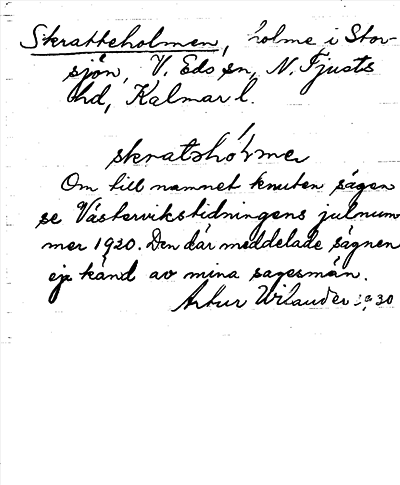 Skratteholmen, holme i Stor-
sjön, V. Eds sn, N. Tjusts
hd, Kalmar l.
skratshólmer
Om till namnet knuten sägen
se Västervikstidningens julnum
mer 1920. Den där meddelade sägnen
ej känd av mina sagesmän.
Artur Wilander 1930